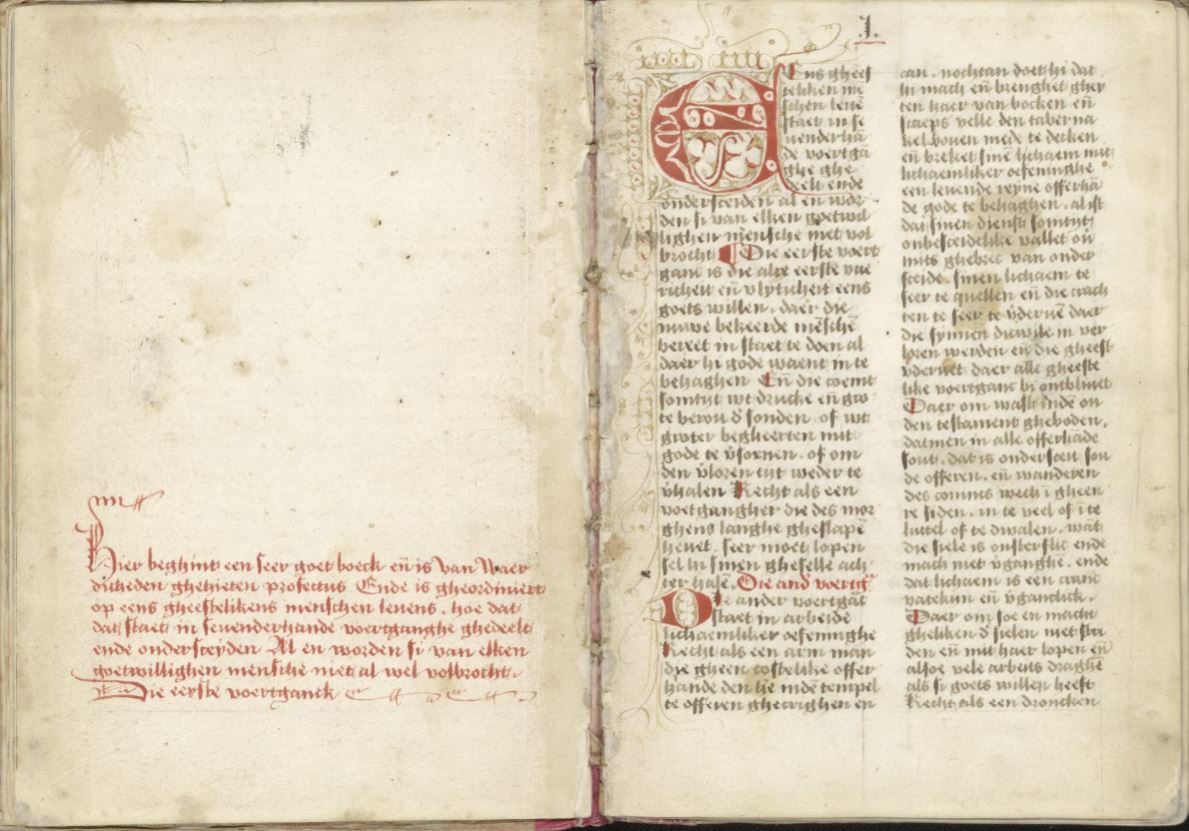 Hier beghint een seer goet boeck eñ is van Waer
dicheden ghehieten profectus Ende is gheordiniert
op eens gheestelikens menschen leuens . hoe dat
dat staet in seuenderhande voertganghe ghedeelt
ende ondersceyden Al en worden si van elken
goetwillighen mensche niet al wel volbrocht .
Die eerste voertganck
.1.
Eens ghees
teliken me
schen leuē
staet in se
uenderhā
de voertgā
ghe ghe
deelt ende
ondersceiden al en wor
den si van elken goetwil
lighen mensche niet vol
brocht Die eerste voert
ganc is die alre eerste vue
richeit eñ vlyticheit eens
goets willen . daer die
nuwe bekeerde mēschē
bereet in staet te doen al
daer hi gode waent in te
behaghen Eñ die coemt
somtijt wt drucke eñ gro
te berou d̄ sonden . of wt
groter begheerten mit
gode te v̄soenen . of om
den v̄loren tijt weder te
v̄halen Recht als een
voetgangher die des mor
ghens langhe gheslapē
heuet . seer moet lopen
sel hi sinen gheselle ach
ter hale . Die and voertg
Die ander voertgāc
staet in arbeide
lichaemliker oefeninghe
Recht als een arm man
die gheen costelike offer
hande den hē inde tempel
te offeren ghecrighen en
can . nochtan doet hi dat
hi mach eñ brenghet ghey
ten haer van bocken eñ
scaeps velle den taberna
kel bouen mede te decken
eñ breket sinē lichaem mit
lichaemliker oefeninghe
een leuende reyne offerhā
de gode te behaghen . al ist
dat sinen dienst somtijt
onbesceidelike vallet oñ
mits ghebrec van onder
sceide . sinen lichaem te
seer te quellen eñ die crach
ten te seer te v̄deruē daer
die synnen diewile in ver
loren werden eñ die gheest
v̄deruet daer alle gheeste
like voertganc bi ontbliuet
Daer om wast indē ou
den testament gheboden .
datmen in alle offerhāde
sout . dat is ondersceit sou
de offeren . eñ wanderen
des conincs wech ī gheen
re siden . in te veel of ī te
luttel of te dwalen . wāt
die siele is onsterflic ende
mach niet v̄ganghē . ende
dat lichaem is een cranc
vatekun eñ v̄ganclick .
Daer om soe en macht
gheliken d̄ sielen niet sta
den eñ mit haer lopen eñ
alsoe vele arbeits draghē
als si goets willen heeft
Recht als een droncken